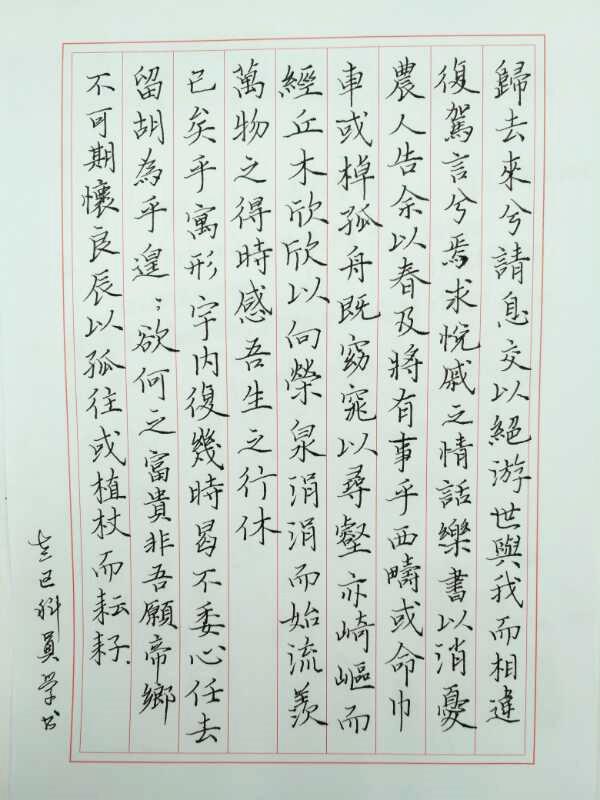 歸去來兮請息交以絕游世與我而相違
復駕言兮焉求悅戚之情話樂書以消憂
農人告余以春及將有事乎西疇或命巾
車或棹孤舟既窈窕以尋壑亦崎嶇而
經丘木欣欣以向榮泉涓涓而始流羨
萬物之得時感吾生之行休
已矣乎寓形宇內復幾時曷不委心任去
留胡為乎遑〻欲何之富貴非吾願帝鄉
不可期懷良辰以孤往或植杖而耘耔
科員学书